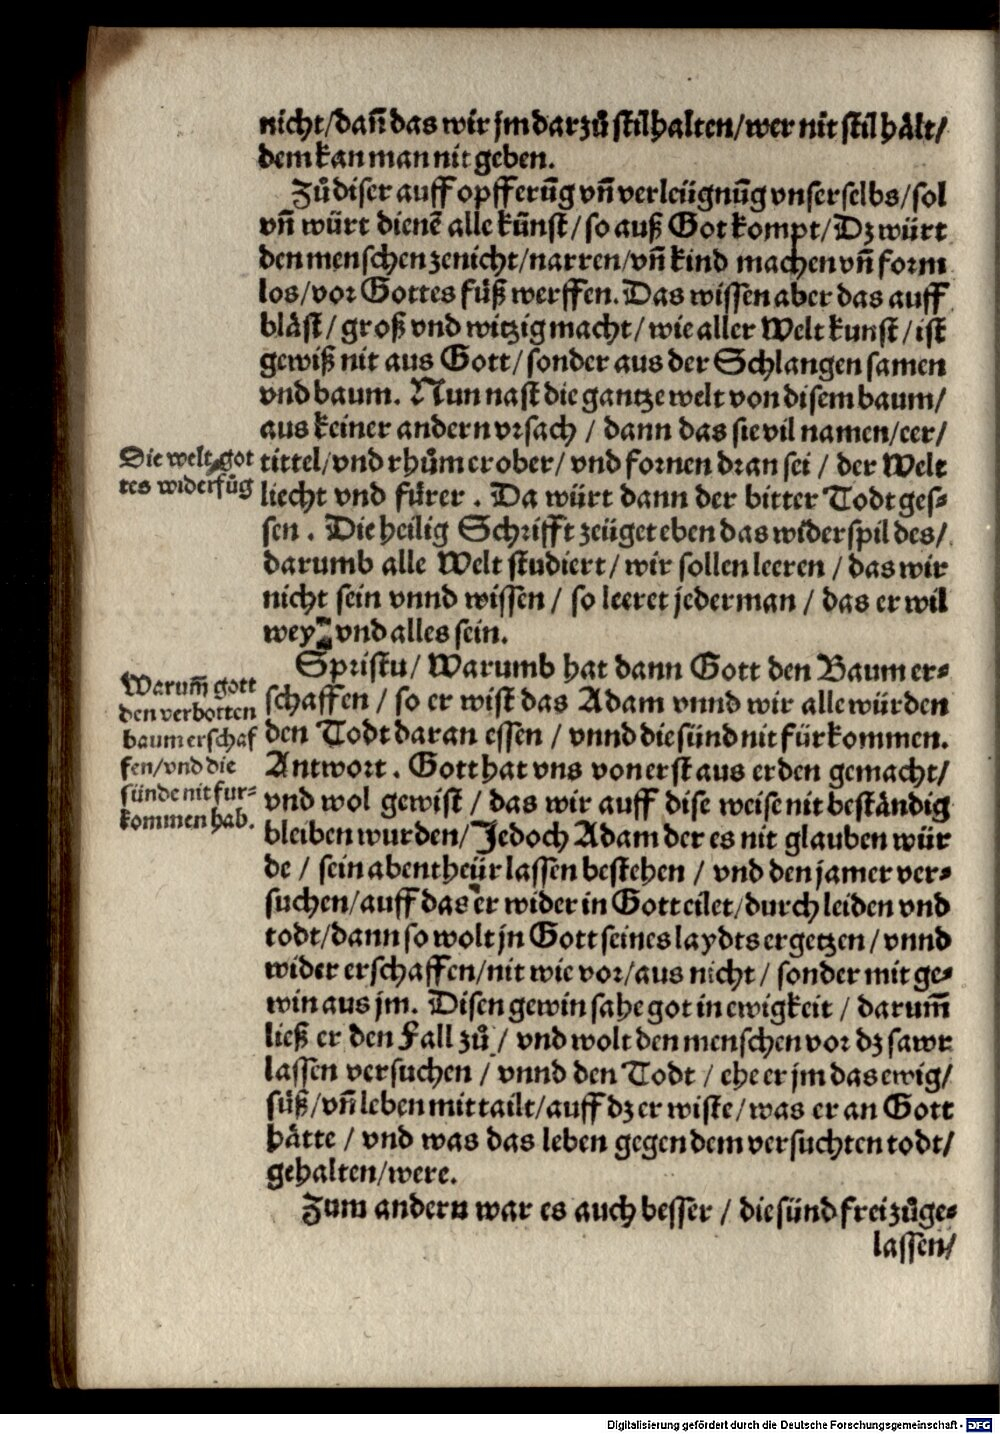 nicht/dañ das wir jm darzů stil halten/wer nit stil hålt/
dem kan man nit geben.
Zů diser auff opfferũg vñ verleügnũg vnser selbs/sol
vñ würt dienẽ alle kũnst/so auß Got kompt/Dz würt
den menschen zenicht/narren/vñ kind machen vñ form
los/vor Gottes füß werffen. Das wissen aber das auff
blåst/groß vnd witzig macht/wie aller Welt kunst/ist
gewiß nit aus Gott/sonder aus der Schlangen samen
vnd baum. Nun nast die gantze welt von disem baum/
aus keiner andern vrsach / dann das sie vil namen/eer/
Die welt got
tes widerfůg
tittel/vnd rhům erober/vnd fornen dran sei / der Welt
liecht vnd fürer . Da würt dann der bitter Todt ges-
sen . Die heilig Schrifft zeüget eben das widerspil des/
darumb alle Welt studiert/wir sollen leeren / das wir
nicht sein vnnd wissen / so leeret jederman / das er wil
vnd alles sein.
Spristu/Warumb hat dann Gott den Baum er-
Warum̃ gott
den verbotten
baum erschaf
fen/vnd die
sünde nit fur-
kommen hab.
schaffen / so er wist das Adam vnnd wir alle würden
den Todt daran essen / vnnd die sünd nit fürkommen.
Antwort . Gott hat vns von erst aus erden gemacht/
vnd wol gewist / das wir auff dise weise nit beståndig
bleiben wurden/Jedoch Adam der es nit glauben wür
de / sein abentheür lassen bestehen / vnd den jamer ver-
suchen/auff das er wider in Gott eilet/durch leiden vnd
todt/dann so wolt jn Gott seines laydts ergetzen/vnnd
wider erschaffen/nit wie vor/aus nicht / sonder mit ge-
win aus jm. Disen gewin sahe got in ewigkeit / darum̃
ließ er den Fall zů / vnd wolt den menschen vor dz sawr
lassen versuchen / vnnd den Todt / ehe er jm das ewig/
süß/vñ leben mittailt/auff dz er wiste/was er an Gott
håtte / vnd was das leben gegen dem versuchten todt/
gehalten/were.
Zum andern war es auch besser / die sünd frei zůge-
lassen/
Digitalisierung gefördert durch die Deutsche Forschungsgemeinschaft - DFG